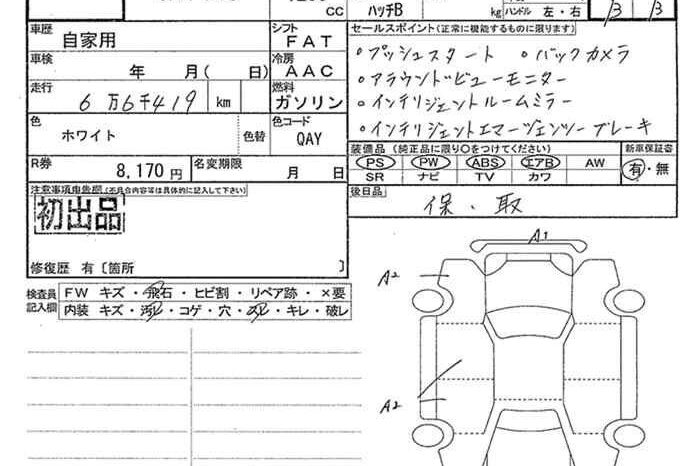 CC ハッチB kg ハンドル 左・右 B B
車歴 自家用 シフト FAT
車検 年 月( 日) 冷房 AAC
走行 6万6千419 km 燃料 ガソリン
色 ホワイト 色替 色コード QAY
R券 8,170円 名変期限 月 日
注意事項申告欄(不具合内容等は具体的に記入して下さい)
初出品
修復歴 有〔箇所 〕
セールスポイント(正常に機能するものに限ります)
・プッシュスタート ・バックカメラ
・アラウンドビューモニター
・インテリジェントルームミラー
・インテリジェントエマージェンシーブレーキ
装備品(純正品に限り○をつけてください) 新車保証書
PS PW ABS エアB AW 有・無
SR ナビ TV カワ
後日品 保・取
検査員記入欄 FW キズ・飛石・ヒビ割・リペア跡・×要
内装 キズ・汚レ・コゲ・穴・スレ・キレ・破レ
A1
A2
A2